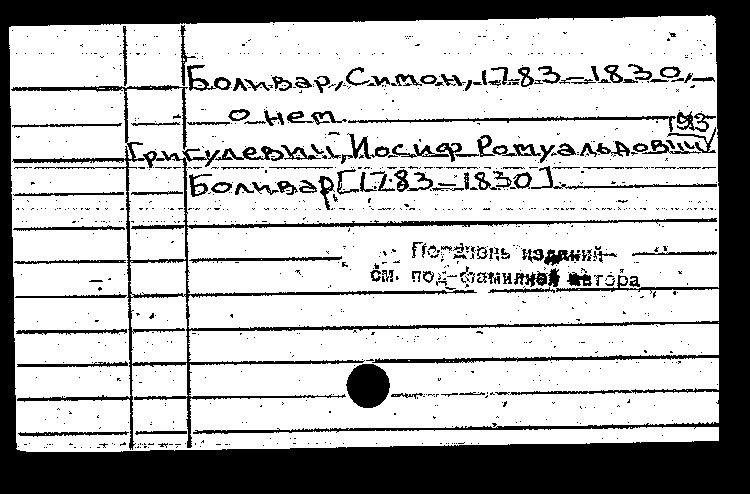 Боливар, Симон, 1783–1830,
о нем.
1913
Григулевич, Иосиф Ромуальдович
Боливар [1783–1830].
Перечень изданий
см. под фамилией автора